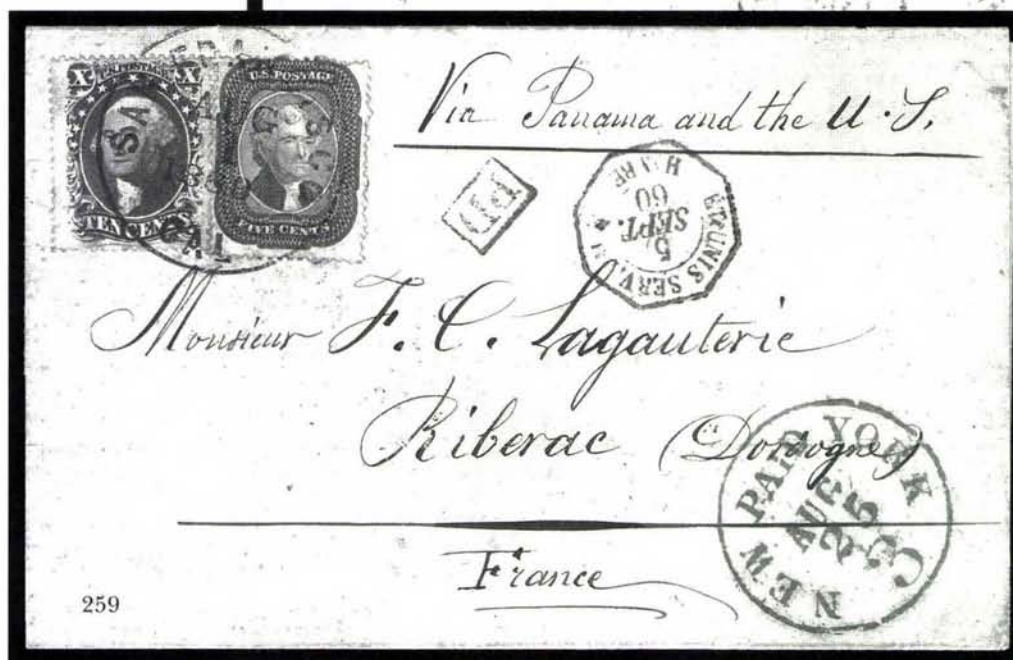 X U.S. POSTAGE X
TEN CENTS
U.S. POSTAGE
FIVE CENTS
CAL
Via Panama and the U.S.
PD
ET.UNIS SERV.
5
SEPT.
60
Monsieur F. C. Lagauterie
Riberac (Dordogne)
France
NEW PAID YORK
AUG
25
3
259